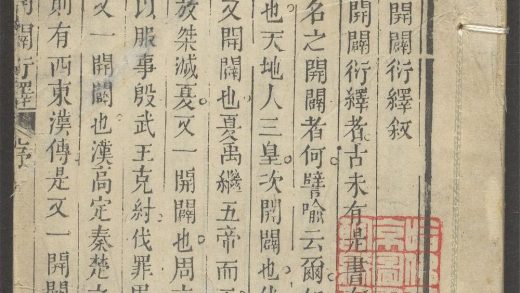 開闢衍繹敘
開闢衍繹者古未有是書
名之開闢者何譬喻云爾
也天地人三皇次開闢也
又開闢也夏禹繼五帝而
放桀滅夏又一開闢也周
以服事殷武王克紂伐罪
又一開闢也漢高定秦楚
則有西東漢傳是又一開闢
開闢衍繹 序